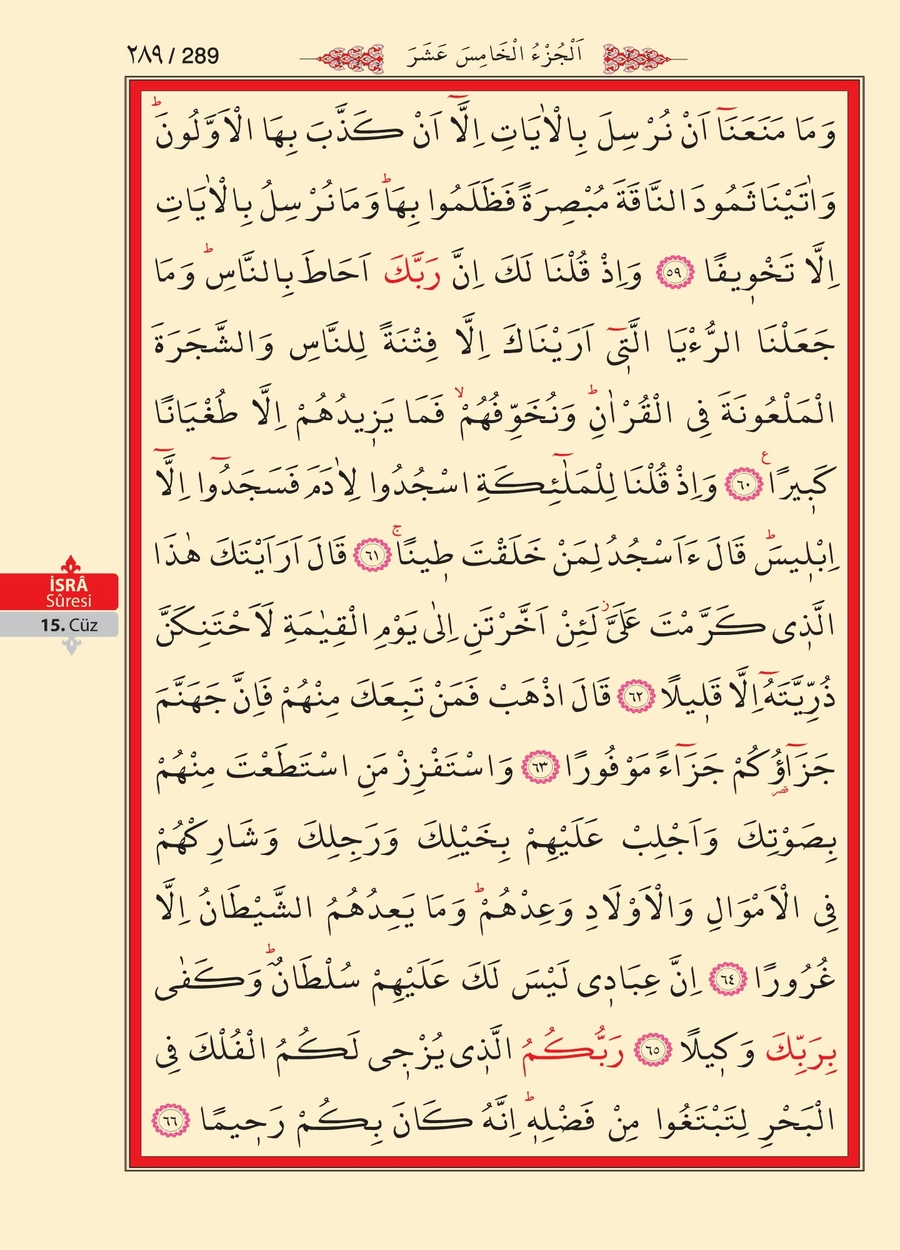 ٢٨٩ / 289
اَلْجُزْءُ الْخَامِسَ عَشَرَ
وَمَا مَنَعَنَٓا اَنْ نُرْسِلَ بِالْاٰيَاتِ اِلَّٓا اَنْ كَذَّبَ بِهَا الْاَوَّلُونَۜ
وَاٰتَيْنَا ثَمُودَ النَّاقَةَ مُبْصِرَةً فَظَلَمُوا بِهَاۜ وَمَا نُرْسِلُ بِالْاٰيَاتِ
اِلَّا تَخْو۪يفًا ﴿٥٩﴾ وَاِذْ قُلْنَا لَكَ اِنَّ رَبَّكَ اَحَاطَ بِالنَّاسِۜ وَمَا
جَعَلْنَا الرُّءْيَا الَّت۪ٓى اَرَيْنَاكَ اِلَّا فِتْنَةً لِلنَّاسِ وَالشَّجَرَةَ
الْمَلْعُونَةَ فِى الْقُرْاٰنِۜ وَنُخَوِّفُهُمْۙ فَمَا يَز۪يدُهُمْ اِلَّا طُغْيَانًا
كَب۪يرًا ع ﴿٦٠﴾ وَاِذْ قُلْنَا لِلْمَلٰٓئِكَةِ اسْجُدُوا لِاٰدَمَ فَسَجَدُٓوا اِلَّٓا
اِبْل۪يسَۜ قَالَ ءَاَسْجُدُ لِمَنْ خَلَقْتَ ط۪ينًاۚ ﴿٦١﴾ قَالَ اَرَاَيْتَكَ هٰذَا
الَّذ۪ى كَرَّمْتَ عَلَىَّۘ لَئِنْ اَخَّرْتَنِ اِلٰى يَوْمِ الْقِيٰمَةِ لَاَحْتَنِكَنَّ
ذُرِّيَّتَهُٓ اِلَّا قَل۪يلًا ﴿٦٢﴾ قَالَ اذْهَبْ فَمَنْ تَبِعَكَ مِنْهُمْ فَاِنَّ جَهَنَّمَ
جَزَٓاؤُ۬كُمْ جَزَٓاءً مَوْفُورًا ﴿٦٣﴾ وَاسْتَفْزِزْ مَنِ اسْتَطَعْتَ مِنْهُمْ
بِصَوْتِكَ وَاَجْلِبْ عَلَيْهِمْ بِخَيْلِكَ وَرَجِلِكَ وَشَارِكْهُمْ
فِى الْاَمْوَالِ وَالْاَوْلَادِ وَعِدْهُمْۜ وَمَا يَعِدُهُمُ الشَّيْطَانُ اِلَّا
غُرُورًا ﴿٦٤﴾ اِنَّ عِبَاد۪ى لَيْسَ لَكَ عَلَيْهِمْ سُلْطَانٌۜ وَكَفٰى
بِرَبِّكَ وَك۪يلًا ﴿٦٥﴾ رَبُّكُمُ الَّذ۪ى يُزْج۪ى لَكُمُ الْفُلْكَ فِى
الْبَحْرِ لِتَبْتَغُوا مِنْ فَضْلِه۪ۜ اِنَّهُ كَانَ بِكُمْ رَح۪يمًا ﴿٦٦﴾
İSRÂ
Sûresi
15. Cüz